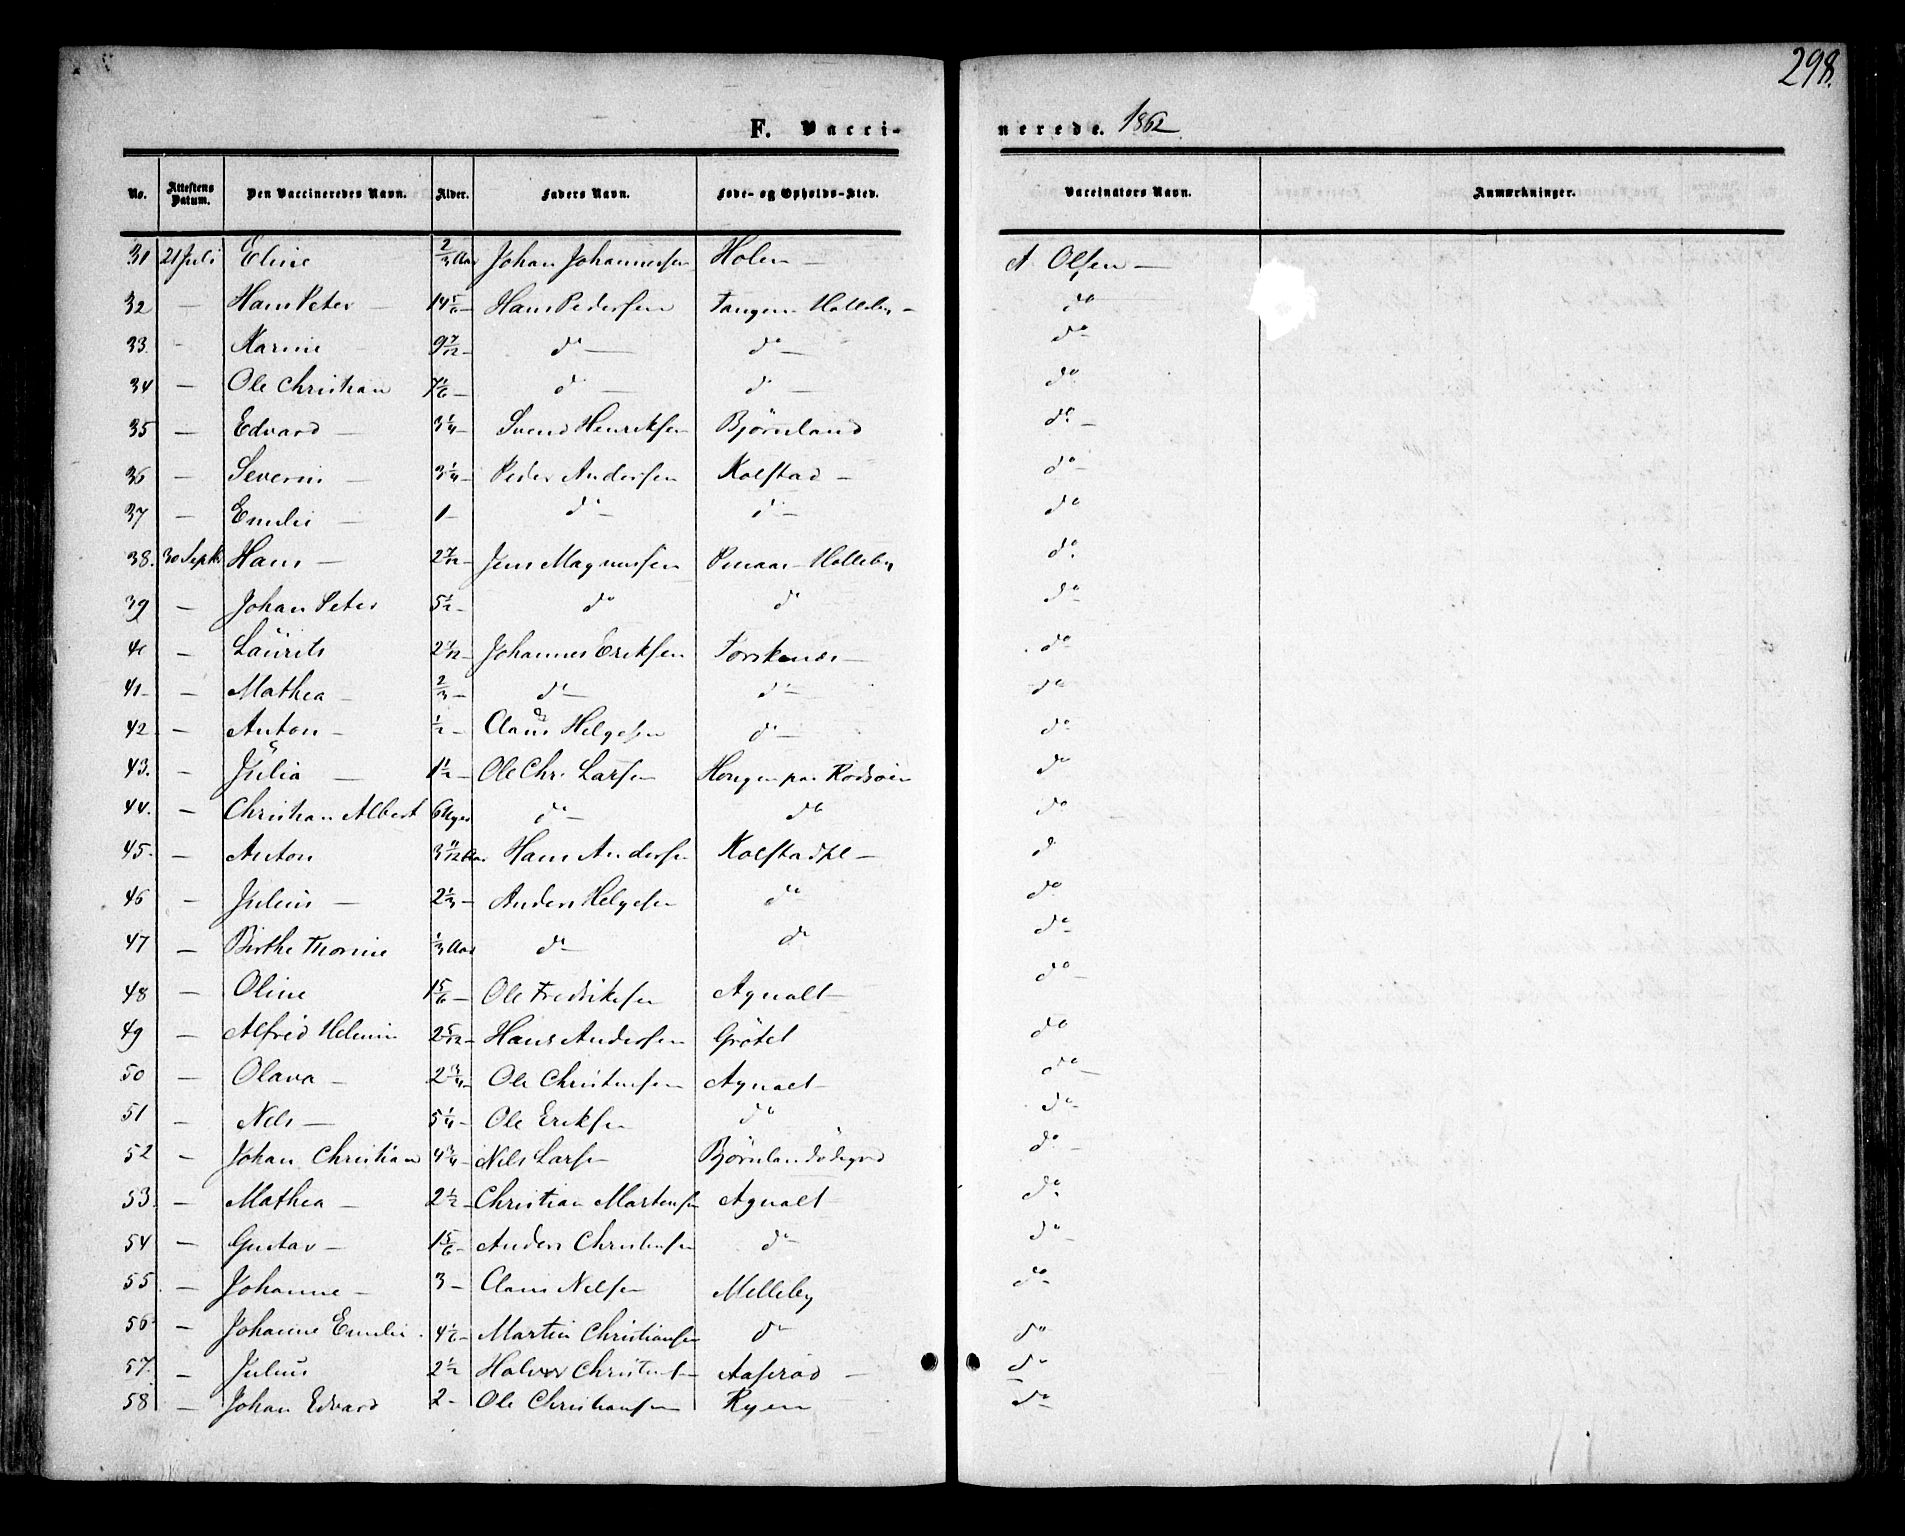 298.
F. Vaccinerede. 1862
No. Attestens Datum. Den Vaccineredes Navn. Alder. Faders Navn. Føde- og Opholds-Sted. Vaccinators Navn. Anmærkninger.
31 21 Juli Eline 2/3 Aar Johan Johannessen Holen — A Olsen —
32 — Hans Peter — 14 5/6 — Hans Pedersen Tangen Holleby — do
33. — Karine 9 7/12 — do — do — do
34 — Ole Christian 7 — do — do — do
35 — Edvard — 3 1/4 — Svend Henriksen Bjørnland do —
36 — Severin — 3 1/4 — Peder Andersen Kolstad — do
37 — Emilie — 1 — do — do — do
38. 30 Septb Hans — 2 7/12 — Jens Magnussen Holleby do
39 — Johan Peter 5 1/2 — do do do
40 — Laurits 2 — Johannes Eriksen Torsknæs — do
41 — Mathea — 2/3 — do — do — do
42 — Anton — 1/2 — Claus Helgesen do — do
43. — Julia — 1 1/2 — Ole Chr. Larsen Haugen paa Rødsøen do
44. — Christian Albert 6 Uger do — do do
45. — Anton 3 11/12 Aar Hans Andersen Kolstadpl — do
46 — Julius — 2 1/3 — Anders Helgesen do do
47 — Birthe Thorine 1/3 Aar do — do do
48 — Oline 1 5/6 — Ole Fredriksen Agnalt — do —
49 — Alfred Helenius 2 5/12 — Hans Andersen Grøtet do
50 — Olava — 2 3/4 — Ole Christensen Agnalt — do —
51 — Nils — 5 1/4 — Ole Eriksen do do
52 — Johan Christian 4 3/4 — Nils Larsen Bjørnlandødegrd do —
53. — Mathea — 2 1/2 — Christian Martensen Agnalt do
54 — Gustav — 1 5/6 — Anders Christensen do do —
55. — Johanne — 3 — Claus Nelsen Melleby do
56. — Johanne Emilie 4 1/6 — Martin Christiansen do do
57. — Julius 2 1/2 Halvor Christensen Aaserød — do
58 — Johan Edvard 2 — Ole Christiansen Ryen do